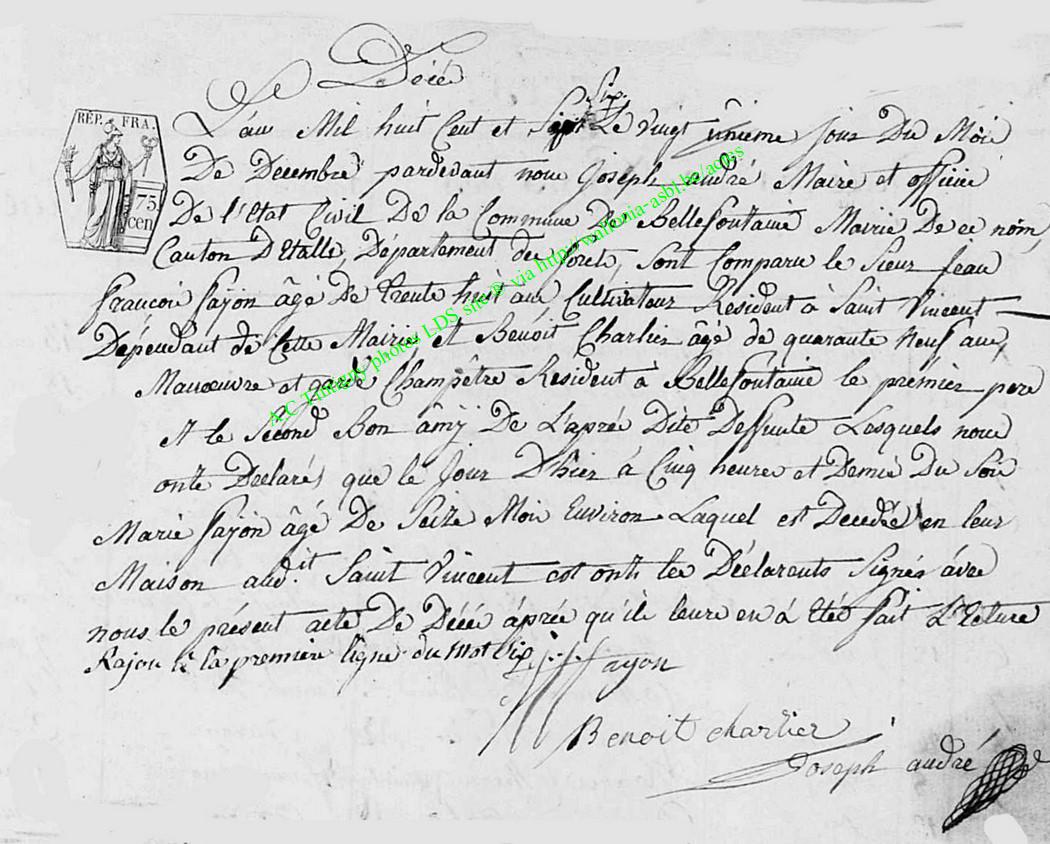 Décé
RÉP. FRA.
75
cen
six
L'an Mil huit Cent et Le vingt unieme jour Du Moi
De Decembre pardevant nous Joseph andré Maire et officié
De l'Etat Civil De la Commune De Bellefontaine Mairie De ce nom,
Canton D'Etalle, Département des forets, sont Comparu le sieur jean
françois fayon âgé De trente huit ans Cultivateur Resident à Saint Vincent
Dépendant de Cette Mairie, et Benoit Charlier âgé de quarante Neuf ans,
Manœuvre et garde Champêtre Resident à Bellefontaine le premier pere
et le second Bon âmÿ De L'aprée Dite Deffunte Lesquels nous
onte Declarés que le Jour D'hier à Cinq heures et Demie Du Soir
Marie fayon âgé De Seize Moi Environ Laquel est Decedée en leur
Maison aud.it Saint Vincent est onts les Déclarents Signés avec
nous le présent acte De Décé âprée qu'ils leure en à Etée fait L'Ecture
Rajou té la premiere ligne du Mot six
ffayon
Benoit charlier
Joseph andré
A.C Thierry photos LDS site® via http://wallonia-asbl.be/actes